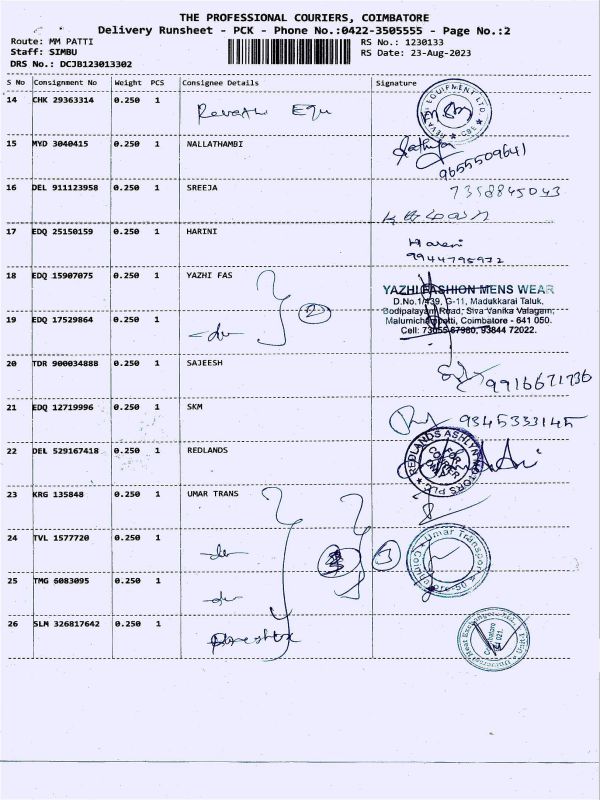 THE PROFESSIONAL COURIERS, COIMBATORE
Delivery Runsheet - PCK - Phone No.:0422-3505555 - Page No.:2
Route: MM PATTI RS No.: 1230133
Staff: SIMBU RS Date: 23-Aug-2023
DRS No.: DCJB123013302
S No Consignment No Weight PCS Consignee Details Signature
14 CHK 29363314 0.250 1 Revathi Equ
REVATHI EQUIPMENT LTD CBE
15 MYD 3040415 0.250 1 NALLATHAMBI
9655509641
16 DEL 911123958 0.250 1 SREEJA 7358845043
17 EDQ 25150159 0.250 1 HARINI Harini
9944795972
18 EDQ 15907075 0.250 1 YAZHI FAS 2
YAZHI FASHION MENS WEAR
D.No.1/439, G-11, Madukkarai Taluk,
Bodipalayam Road, Siva Vanika Valagam,
Malumichampatti, Coimbatore - 641 050.
Cell: 73055 67980, 93844 72022.
19 EDQ 17529864 0.250 1 -do-
20 TDR 900034888 0.250 1 SAJEESH 9916671736
21 EDQ 12719996 0.250 1 SKM 9345333145
22 DEL 529167418 0.250 1 REDLANDS
REDLANDS ASHLYN MOTORS PLC
23 KRG 135848 0.250 1 UMAR TRANS
24 TVL 1577720 0.250 1 -do- 3
Umar Transport
25 TMG 6083095 0.250 1 -do-
26 SLM 326817642 0.250 1